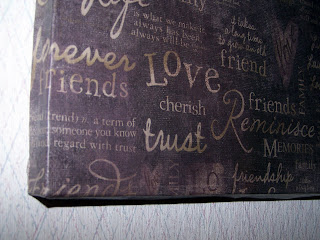 Life
is what we make it
always has been
always will be
it takes
a long time
to grow an old
friend
forever
friends
Love
cherish
trust
friend (frend) : a term of
someone you know
regard with trust
friends
Reminisce
Memories
FAMILY
friendship
Friends